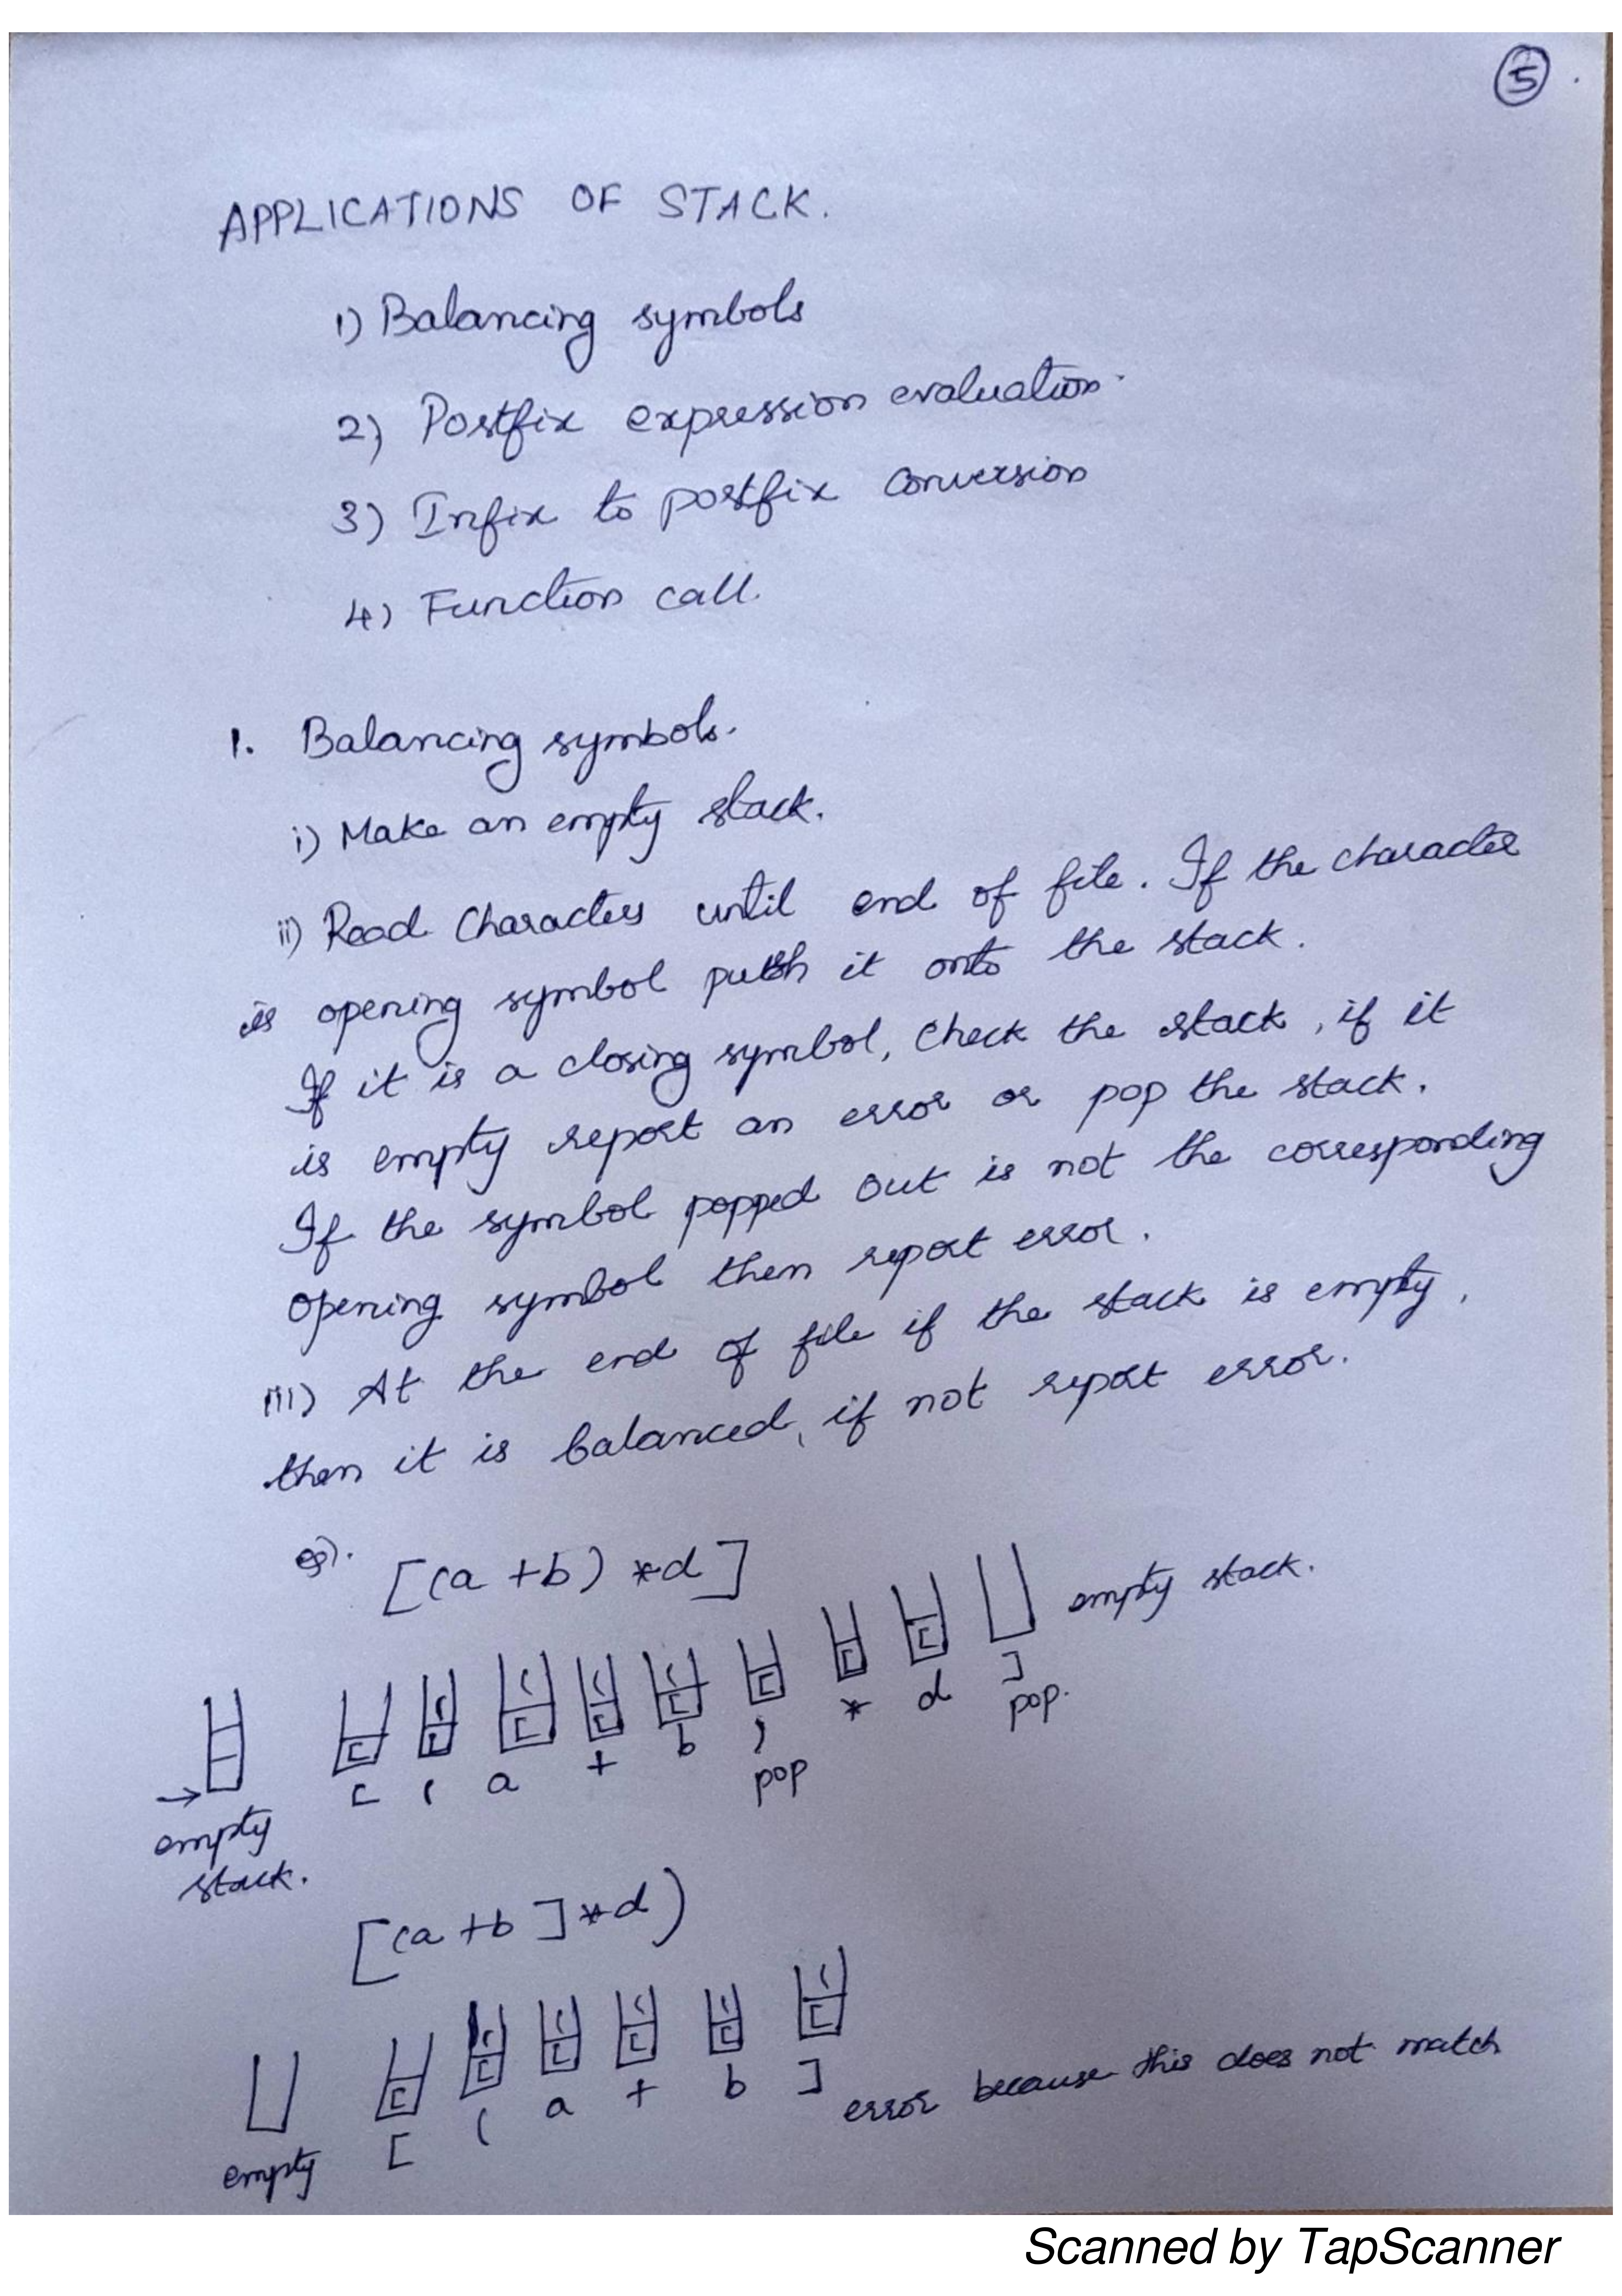 5
APPLICATIONS OF STACK.
1) Balancing symbols
2) Postfix expression evaluation.
3) Infix to postfix conversion
4) Function call.
1. Balancing symbols.
i) Make an empty stack.
ii) Read Characters until end of file. If the character
is opening symbol push it onto the stack.
If it is a closing symbol, check the stack, if it
is empty report an error or pop the stack.
If the symbol popped out is not the corresponding
opening symbol then report error.
iii) At the end of file if the stack is empty,
then it is balanced, if not report error.
eg). [(a +b) *d]
[ [ ( [ ( [ ( [ ( [ [ [ [ empty stack.
[ ( a + b ) * d ]
pop pop.
→ empty
stack.
[(a +b ]*d)
[ [ ( [ ( [ ( [ ( [ (
[ ( a + b ] error because this does not match
empty
Scanned by TapScanner